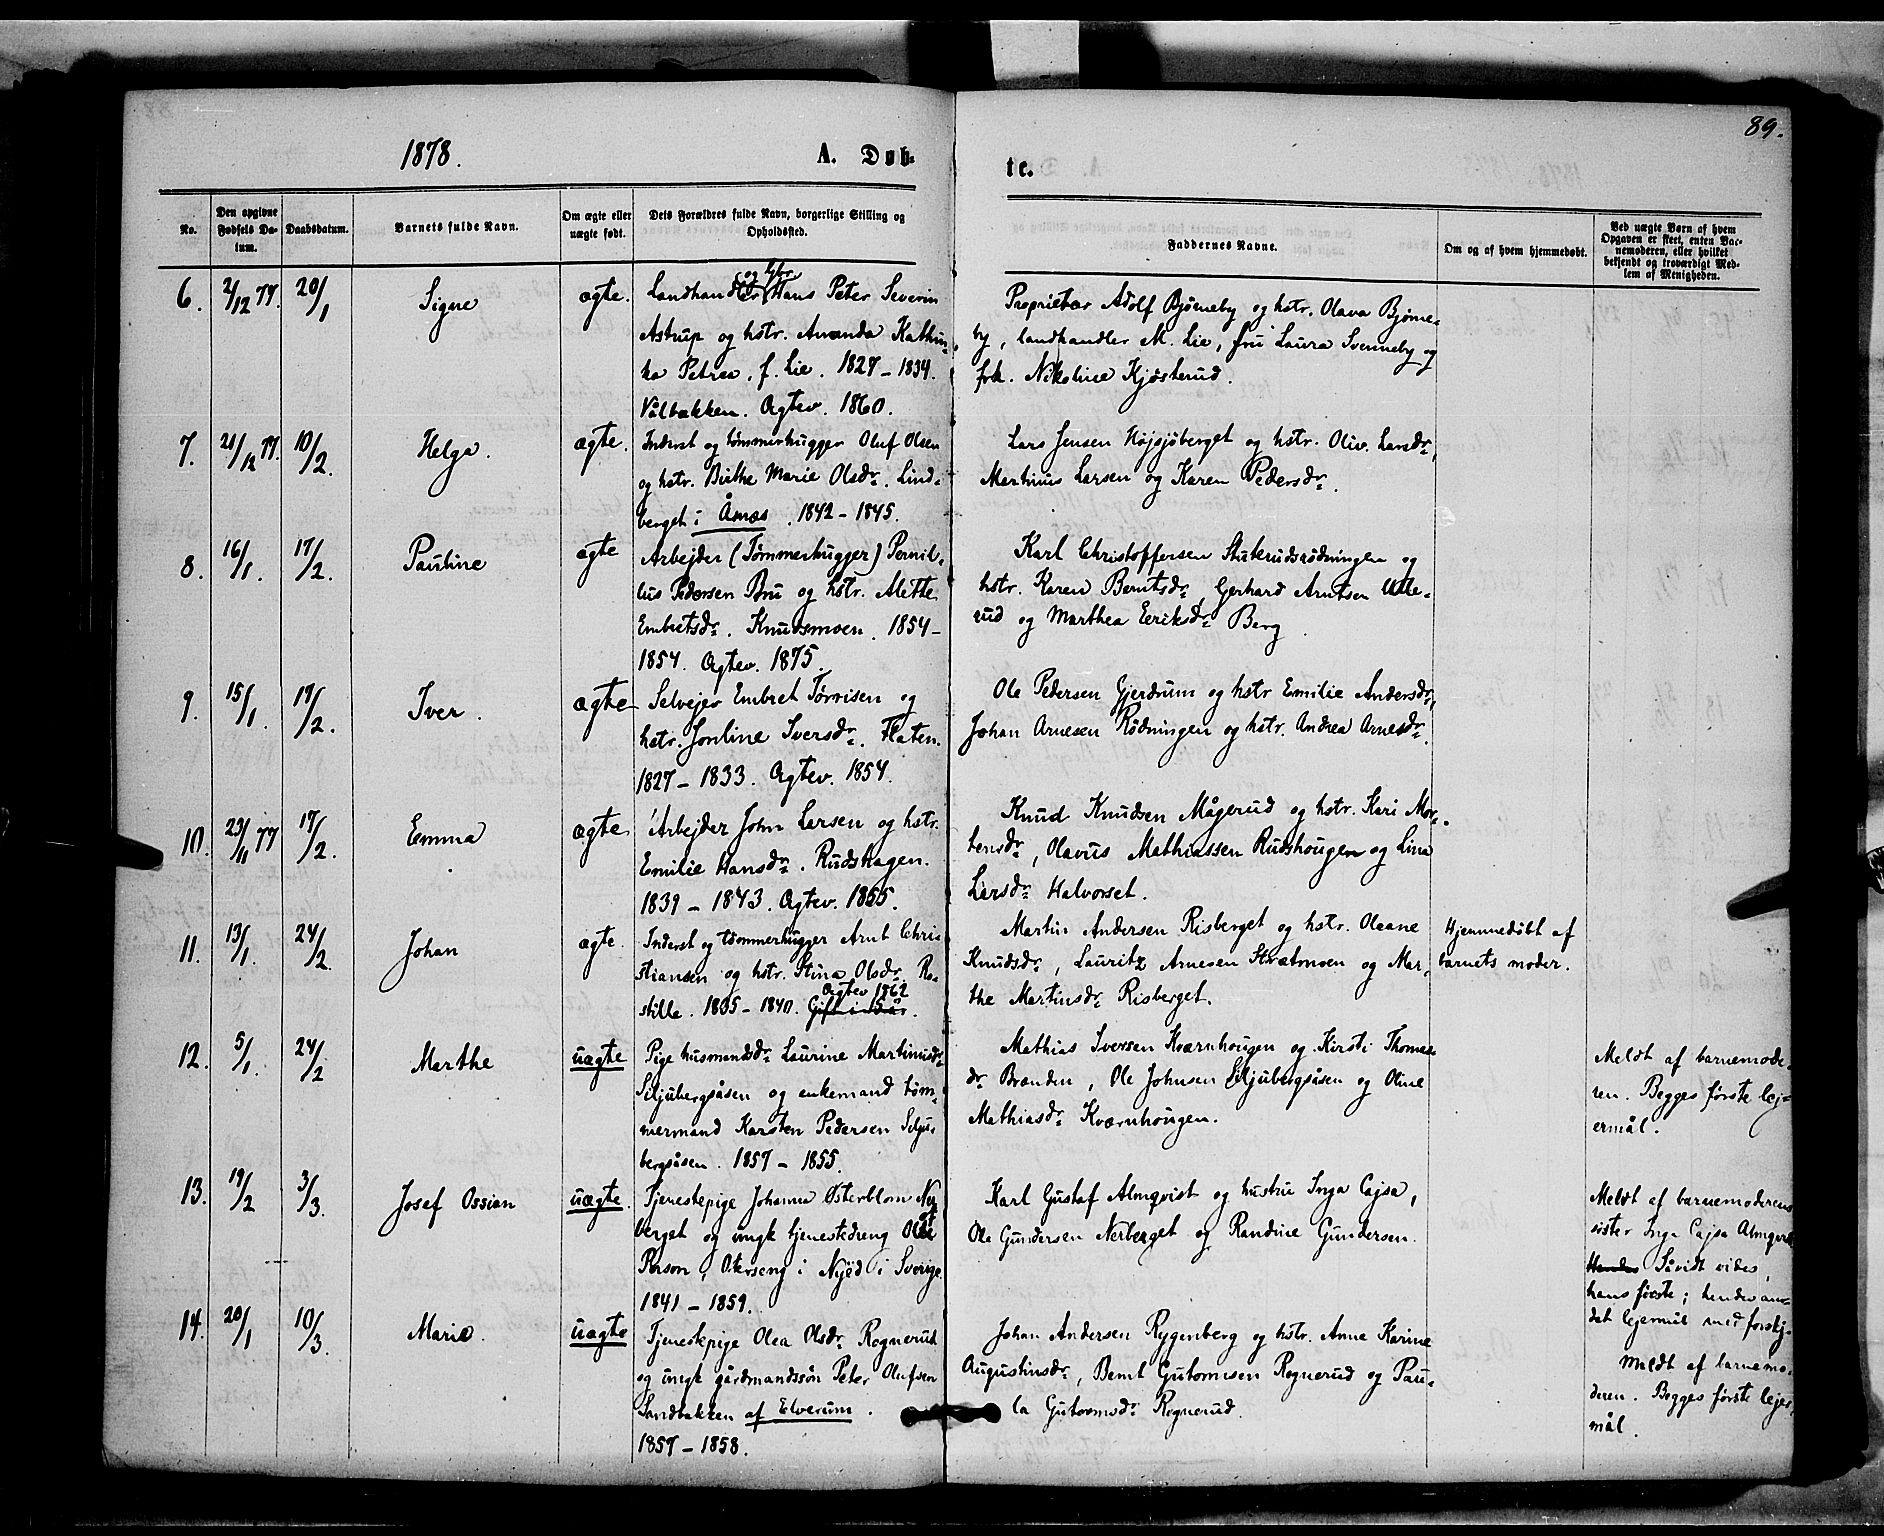 1878.
A. Døb-
te.
89.
No.
Den opgivne Fødsels Datum.
Daabsdatum.
Barnets fulde Navn.
Om ægte eller uægte født.
Dets Forældres fulde Navn, borgerlige Stilling og Opholdssted.
Faddernes Navne.
Om og af hvem hjemmedøbt.
Ved uægte Børn af hvem Opgaven er skeet, enten Barnemoderen, eller hvilket bekjendt og troværdigt Medlem af Menigheden.
6. 2/12 77. 20/1 Signe ægte.
Landhandler Hans Peter Severin
Astrup og hstr. Amanda Kathin-
ka Petrea, f. Lie. 1827 – 1834.
Vålbakken. Ægtev. 1860.
Proprietær Adolf Bjørneby og hstr. Olava Bjørne-
by, landhandler M. Lie, fru Laura Svenneby og
frk. Nikoline Kjøsterud.
7. 21/12 77. 10/2. Helga. ægte.
Inderst og tømmerhugger Oluf Olsen
og hstr. Birthe Marie Olsdr. Lind-
berget i Åmos. 1842 – 1845.
Lars Jensen Højsjöberget og hstr. Oliv. Larsdr,
Martinius Larsen og Karen Pedersdr.
8. 16/1. 17/2. Pauline ægte
Arbejder (Tømmerhugger) Pernil-
lus Pedersen Bru og hstr. Alette
Embretsdr. Knudsmoen. 1854 –
1854. Ægtev. 1875.
Karl Christoffersen Stukerudsrødningen og
hstr. Karen Berntsdr, Gerhard Arntsen Ulle-
rud og Marthea Eeriksdr Berg.
9. 15/1. 17/2. Iver. ægte
Selvejer Embret Tørrisen og
hstr. Jonline Iversdr. Flaten.
1827 – 1833. Ægtev. 1854.
Ole Pedersen Gjerdrum og hstr Emilie Andersdr,
Johan Arnesen Rødningen og hstr. Andrea Arnesdr.
10. 23/11 77 17/2. Emma ægte
Arbejder John Larsen og hstr.
Emilie Hansdr. Rudshagen.
1839 – 1843. Ægtev. 1865.
Knud Knudsen Mågerud og hstr. Kari Mor-
tensdr, Olavus Mathiassen Rudshougen og Lina
Larsdr Halvorset.
11. 13/1. 24/2. Johan ægte.
Inderst og tømmerhugger Arnt Chri-
stiansen og hstr. Stina Olsdr. Ro-
Ægtev 1862
stille. 1835 – 1840. Gift i 15 år.
Martin Andersen Risberget og hstr. Oleane
Knudsdr, Lauritz Arnesen Strætmoen og Mar-
the Martinsdr Risberget.
Hjemmedøbt af
barnets moder.
12. 5/1. 24/2 Marthe uægte
Pige husmandsdr Laurine Martinusdr
Siljubergsåsen og enkemand tøm-
mermand Karsten Pedersen Silju-
bergsåsen. 1857 – 1855.
Mathias Iversen Kværnhougen og Kirsti Thomas-
dr Brænden, Ole Johnsen Siljubergsåsen og Oline
Mathiasdr Kværnhougen.
Meldt af barnemode-
ren. Begges første lej-
ermål.
13. 19/2 3/3. Josef Ossian uægte.
Tjenestepige Johanna Østerblom Ner-
berget og ungk tjenestedreng Olof
Person, Oterseng i Nyed i Sverige
1841 – 1859.
Karl Gustaf Almqvist og hustru Inga Cajsa,
Ole Gundersen Nerberget og Randine Gundersen.
Meldt af barnemoderens
sister Inga Cajsa Almqvist
Hendes Såvidt vides,
hans første; hendes an-
det lejermål med forskj.
14. 20/1 10/3. Marie. uægte
Tjenestepige Olea Olsdr Rognerud
og ungk gårdmandssön Peter Olufsen
Sandbakken af Elverum.
1857 – 1858.
Johan Andersen Rygenberg og hstr. Anne Karine
Augustinsdr, Bernt Gutormsen Rognerud og Pau-
la Gutormsdr Rognerud.
Meldt af barnemo-
deren. Begges første lejer-
mål.